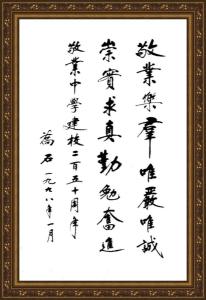 敬業樂羣唯嚴唯誠
崇實求真勤勉奮進
敬業中學建校二百五十周年
石一九九八年一月